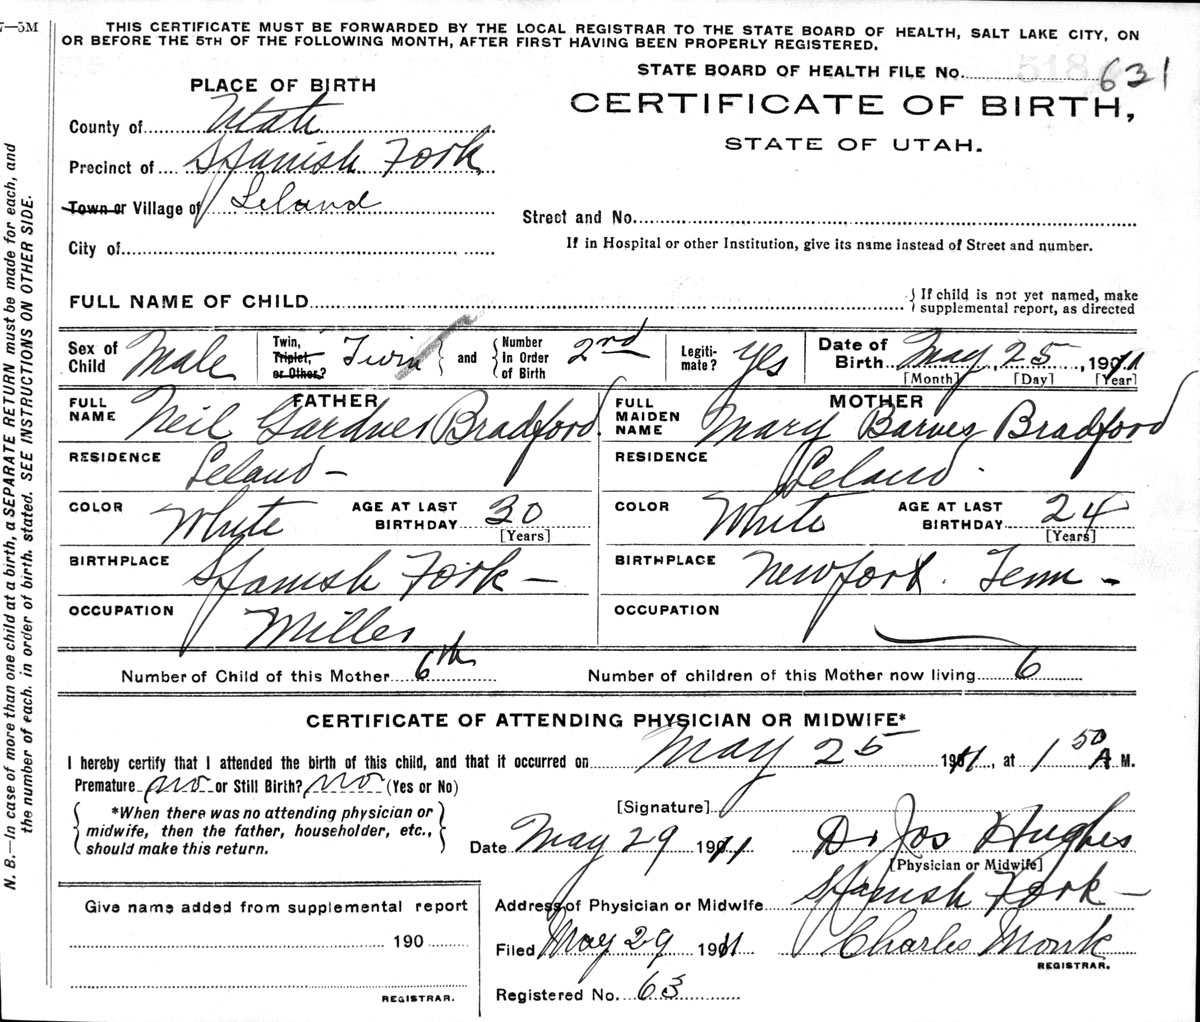 7—5M
THIS CERTIFICATE MUST BE FORWARDED BY THE LOCAL REGISTRAR TO THE STATE BOARD OF HEALTH, SALT LAKE CITY, ON
OR BEFORE THE 5TH OF THE FOLLOWING MONTH, AFTER FIRST HAVING BEEN PROPERLY REGISTERED.
STATE BOARD OF HEALTH FILE No. 631
PLACE OF BIRTH
CERTIFICATE OF BIRTH,
STATE OF UTAH.
County of Utah
Precinct of Spanish Fork
Town or Village of Leland
Street and No.
City of
If in Hospital or other Institution, give its name instead of Street and number.
FULL NAME OF CHILD
If child is not yet named, make
supplemental report, as directed
Sex of Child Male Twin, Triplet, or Other? Twin and Number In Order of Birth 2nd Legiti-mate? Yes Date of Birth May 25, 1911
[Month] [Day] [Year]
FATHER
FULL NAME Neil Gardner Bradford
RESIDENCE Leland -
COLOR White AGE AT LAST BIRTHDAY 30
[Years]
BIRTHPLACE Spanish Fork -
OCCUPATION Miller
MOTHER
FULL MAIDEN NAME Mary Barnes Bradford
RESIDENCE Leland.
COLOR White AGE AT LAST BIRTHDAY 24
[Years]
BIRTHPLACE Newport. Tenn -
OCCUPATION
Number of Child of this Mother 6th Number of children of this Mother now living 6
CERTIFICATE OF ATTENDING PHYSICIAN OR MIDWIFE*
I hereby certify that I attended the birth of this child, and that it occurred on May 25 1911, at 1 50 A M.
Premature no or Still Birth? no (Yes or No)
*When there was no attending physician or
midwife, then the father, householder, etc.,
should make this return.
[Signature]
Date May 29 1911 Dr Jos Hughes
[Physician or Midwife]
Address of Physician or Midwife Spanish Fork -
Filed May 29 1911 Charles Monk
REGISTRAR.
Registered No. 63
Give name added from supplemental report
190
REGISTRAR.
N. B.—In case of more than one child at a birth, a SEPARATE RETURN must be made for each, and
the number of each, in order of birth, stated. SEE INSTRUCTIONS ON OTHER SIDE.